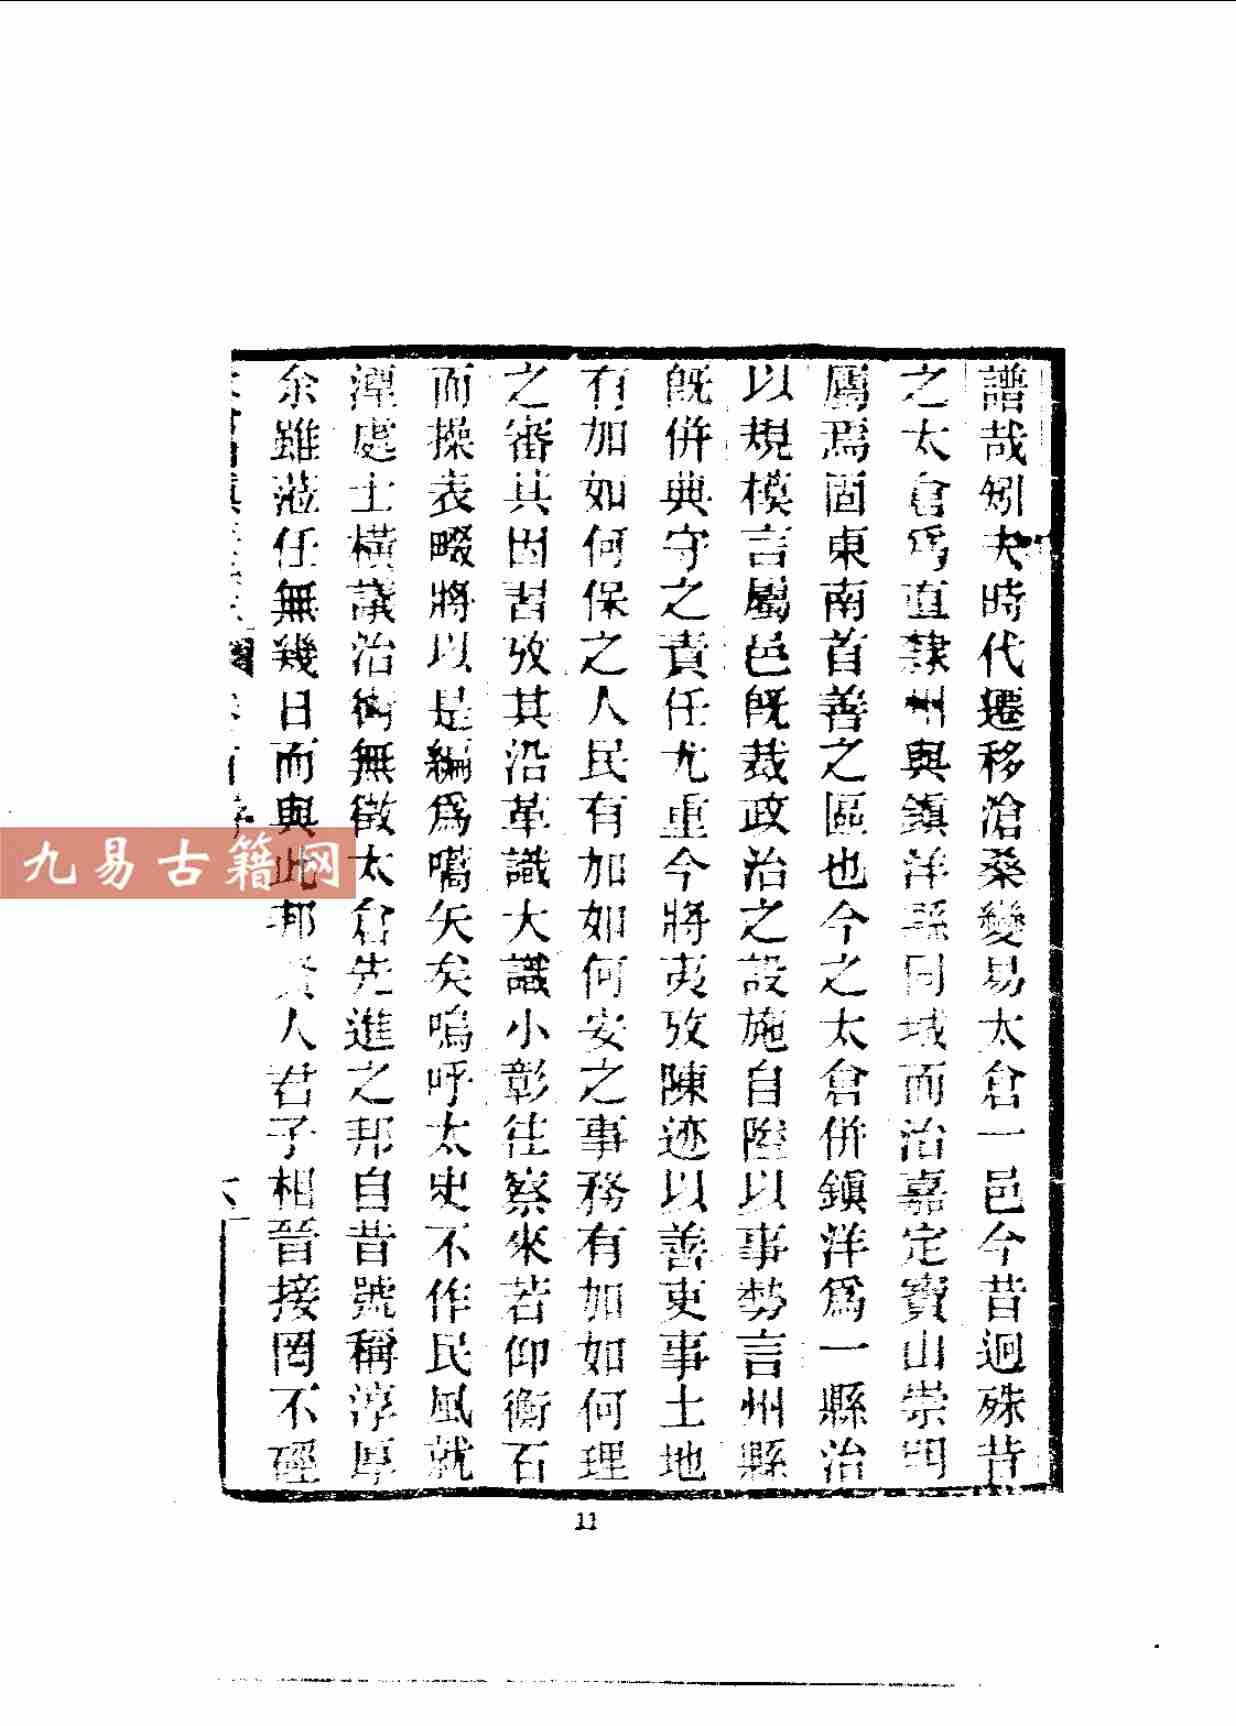 譜哉矧夫時代遷移滄桑變易太倉一邑今昔迥殊昔
之太倉爲直隸州與鎮洋縣同城而治嘉定寶山崇明
屬焉固東南首善之區也今之太倉併鎮洋爲一縣治
以規模言屬邑旣裁政治之設施自隘以事勢言州縣
旣併典守之責任尤重今將夷攷陳迹以善吏事土地
有加如何保之人民有加如何安之事務有加如何理
之審其因習攷其沿革識大識小彰往察來若仰衡石
而操表畷將以是編爲嚆矢矣嗚呼太史不作民風就
漓處士橫議治術無徵太倉先進之邦自昔號稱淳厚
余雖蒞任無幾日而與此邦賢人君子相晉接罔不硜
六
11
九易古籍网